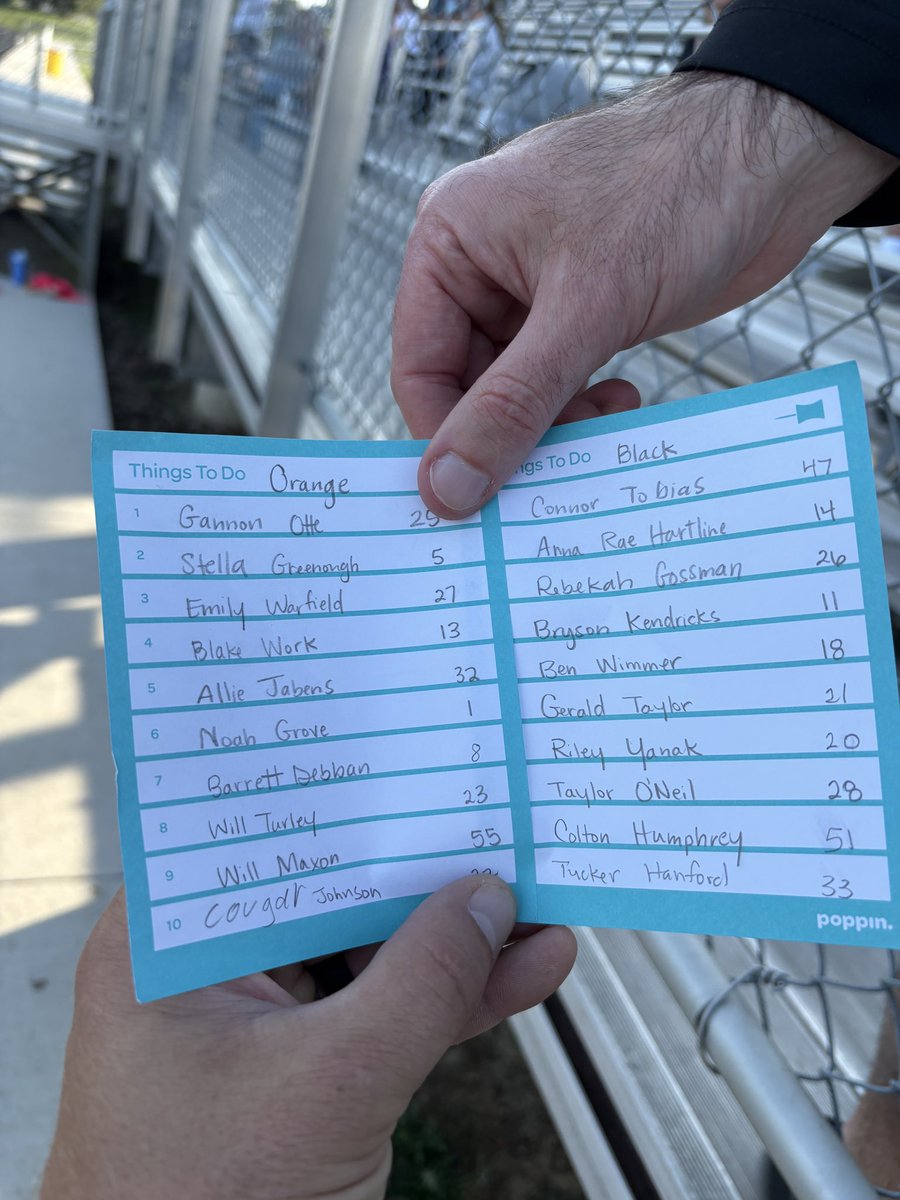 Things To Do Orange
1 Gannon Otte 25
2 Stella Greenough 5
3 Emily Warfield 27
4 Blake Work 13
5 Allie Jabens 32
6 Noah Grove 1
7 Barrett Debban 8
8 Will Turley 23
9 Will Maxon 55
10 Cougar Johnson
ngs To Do Black
Connor Tobias 47
Anna Rae Hartline 14
Rebekah Gossman 26
Bryson Kendricks 11
Ben Wimmer 18
Gerald Taylor 21
Riley Yanak 20
Taylor O'Neil 28
Colton Humphrey 51
Tucker Hanford 33
poppin.